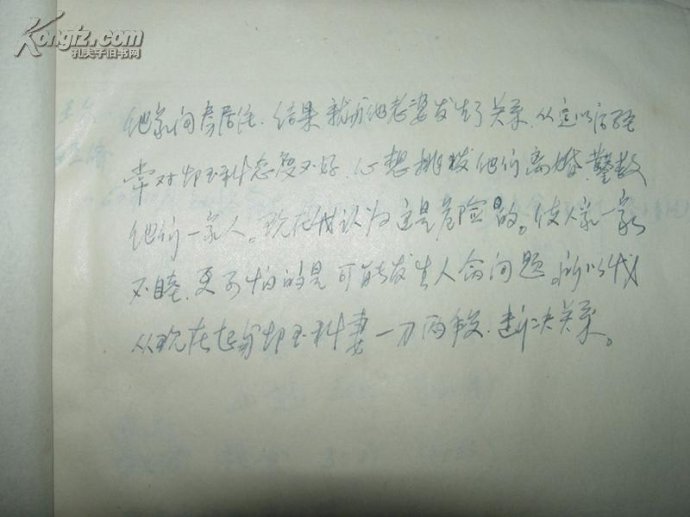 Kongfz.com
孔夫子旧书网
他家向房居住.结果就和他老婆发生了关系.从这以后经
常对郑玉科态度不好.心想挑拨他们离婚.
他们一家人。现在我认为这是危险的。使人家一家
不睦.更可怕的是可能发生人命问题.所以我
从现在起与郑玉科妻一刀两段.断决关系。